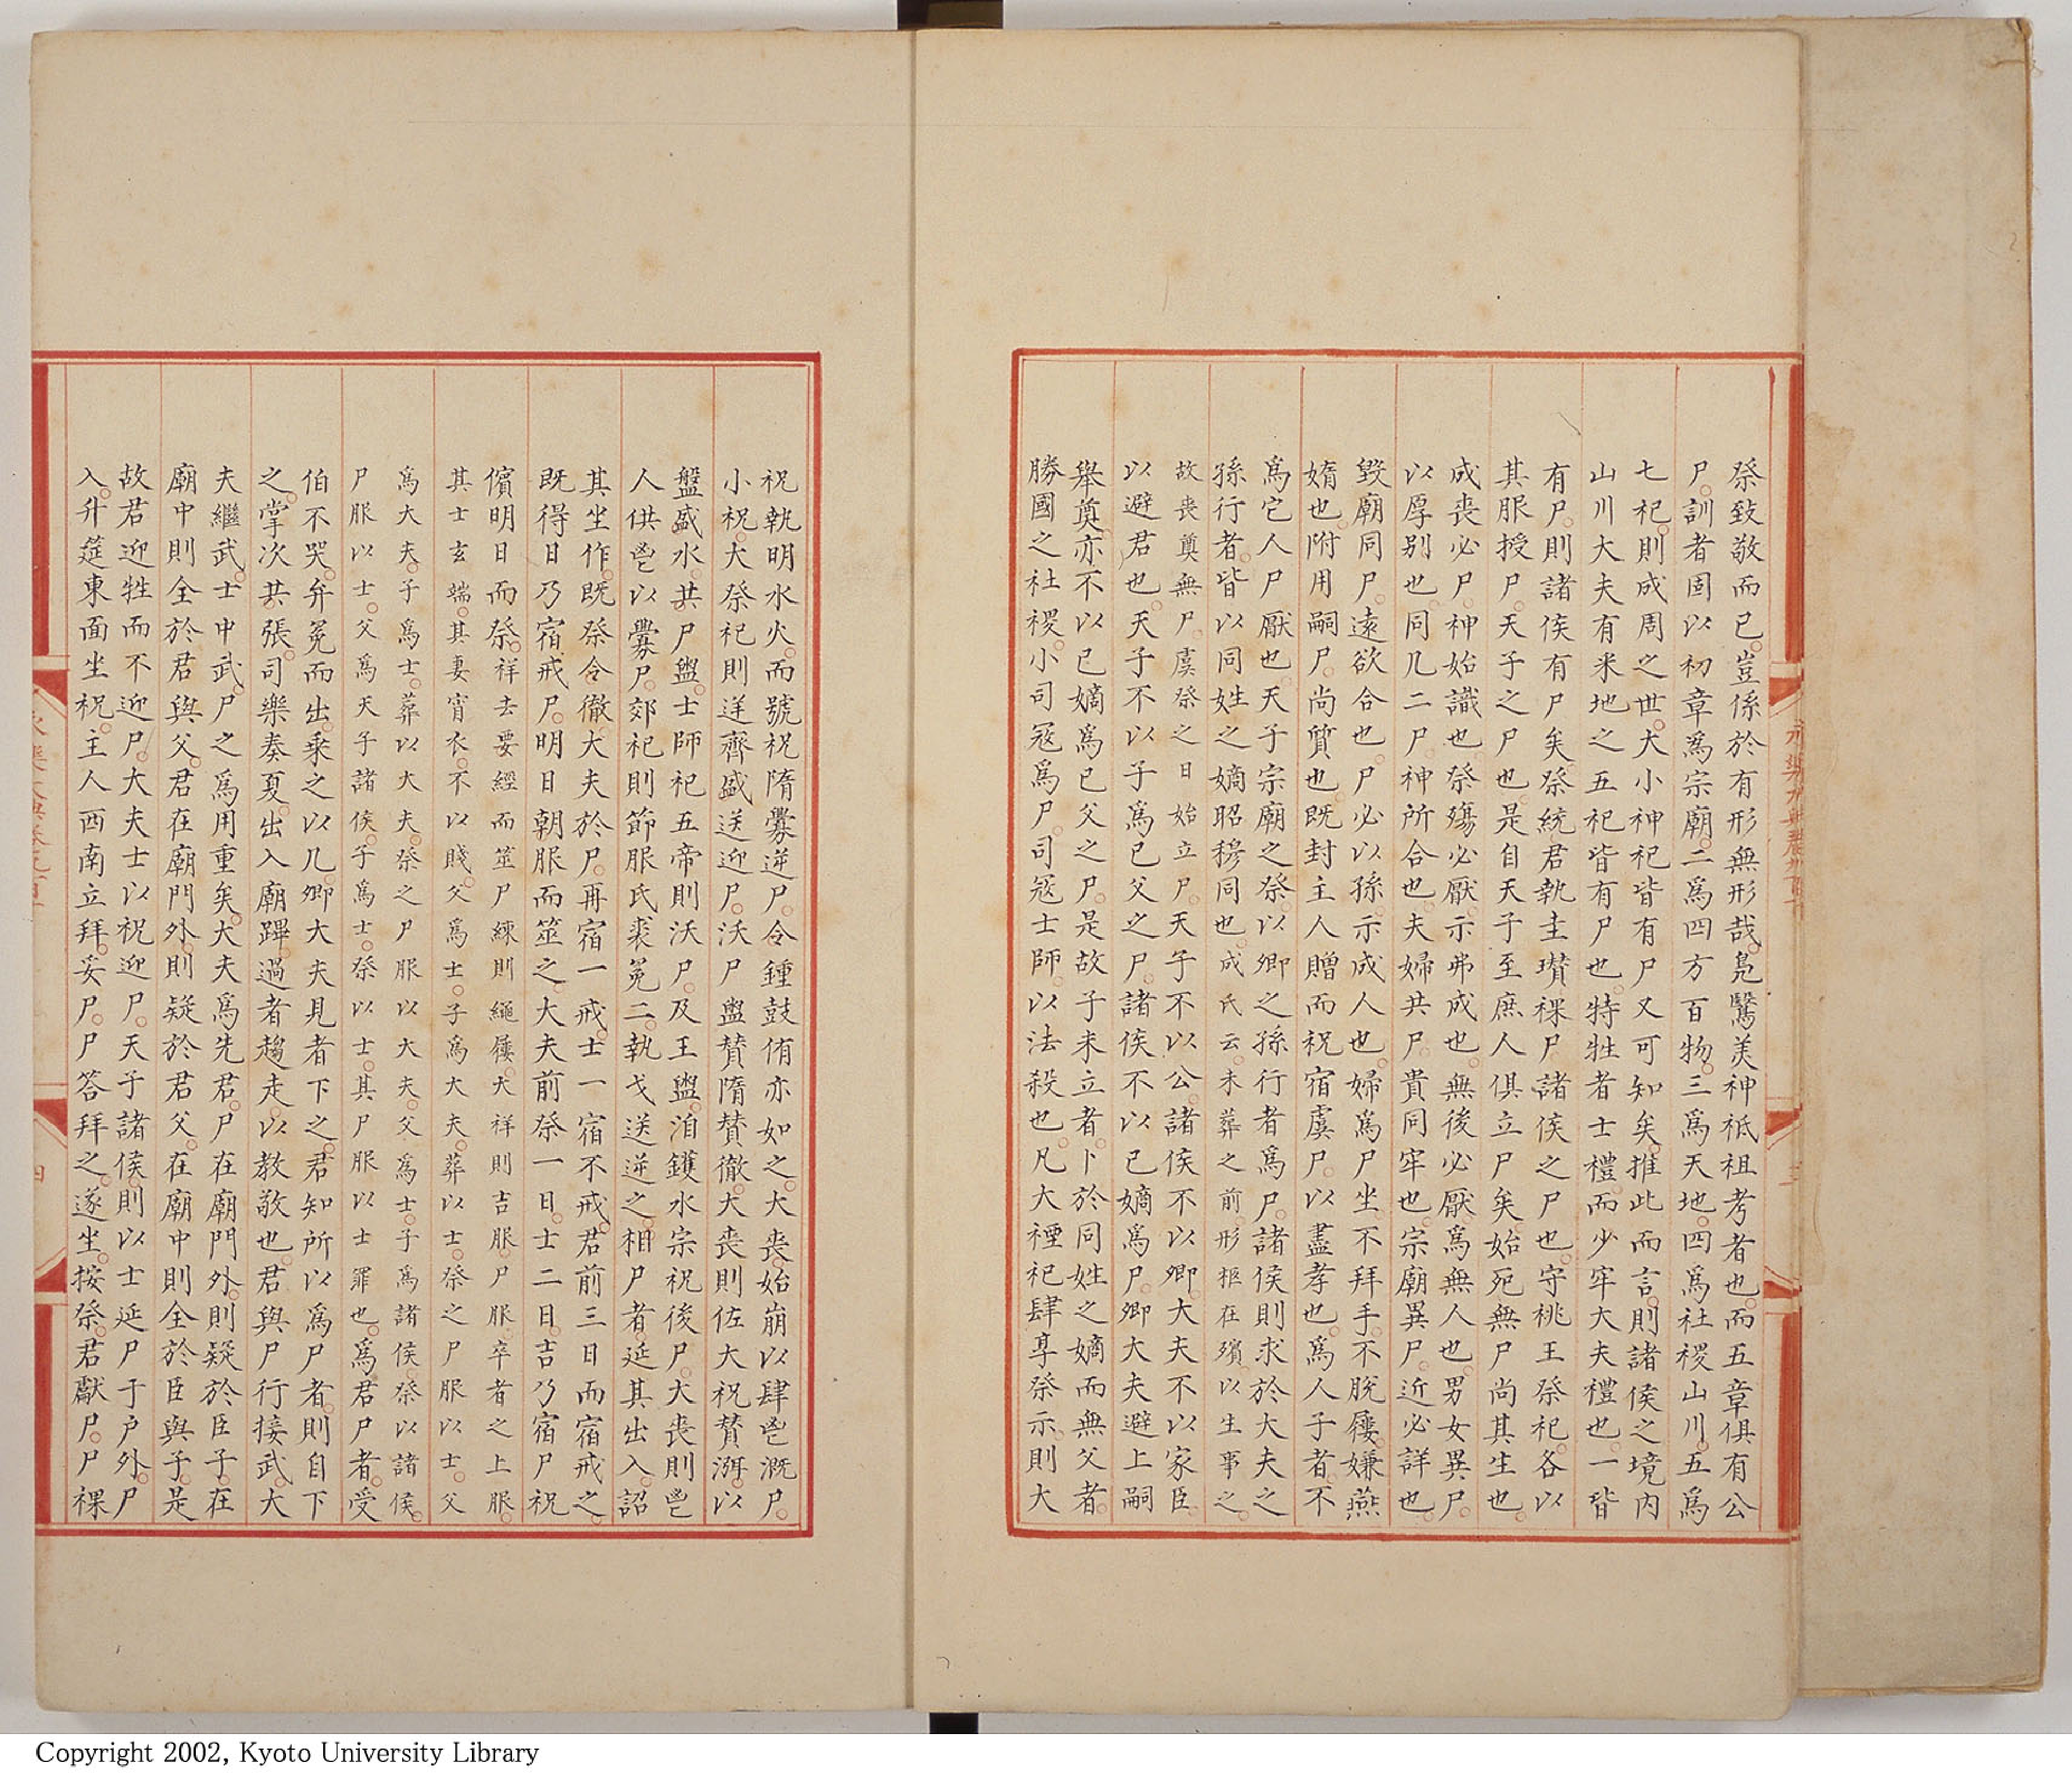 祭致敬而已豈係於有形無形哉鳧鷖美神祗祖考者也而五章俱有公
尸訓者固以初章為宗廟二爲四方百物三爲天地四爲社稷山川五爲
七祀則成周之世大小神祀皆有尸又可知矣推此而言則諸侯之境內
山川大夫有采地之五祀皆有尸也特牲者士禮而少牢大夫禮也一皆
有尸則諸侯有尸矣祭統君執圭瓚祼尸諸侯之尸也守祧王祭祀各以
其服授尸天子之尸也是自天子至庶人俱立尸矣始死無尸尚其生也
成喪必尸神始識也祭殤必厭示弗成也無後必厭爲無人也男女異尸
以厚別也同几二尸神所合也夫婦共尸貴同牢也宗廟異尸近必詳也
毀廟同尸遠欲合也尸必以孫示成人也婦爲尸坐不拜手不脫屨嫌燕
媠也附用嗣尸尚質也既封主人贈而祝宿虞尸以盡孝也爲人子者不
爲它人尸厭也天子宗廟之祭以卿之孫行者爲尸諸侯則求於大夫之
孫行者皆以同姓之嫡昭穆同也成氏云未葬之前形柩在殯以生事之
故喪奠無尸虞祭之日始立尸天子不以公諸侯不以卿大夫不以家臣
以避君也天子不以子爲已父之尸諸侯不以已嫡爲尸卿大夫避上嗣
舉奠亦不以已嫡爲已父之尸是故子未立者卜於同姓之嫡而無父者
勝國之社稷小司寇爲尸司寇士師以法殺也凡大禋祀肆享祭示則大
祝執明水火而號祝隋釁逆尸令鍾鼓侑亦如之大喪始崩以肆鬯漑尸
小祝大祭祀則逆齊盛送迎尸沃尸盥贊隋贊徹大喪則佐大祝贊渳以
盤盛水共尸盥士師祀五帝則沃尸及王盥洎鑊水宗祝後尸大喪則鬯
人供鬯以釁尸郊祀則節服氏裘冕二執戈送逆之相尸者延其出入詔
其坐作既祭令徹大夫於尸再宿一戒士一宿不戒君前三日而宿戒之
既得日乃宿戒尸明日朝服而筮之大夫前祭一日士二日吉乃宿尸祝
儐明日而祭祥去要絰而筮尸練則繩屨大祥則吉服尸服卒者之上服
其士玄端其妻宵衣不以賤父爲士子爲大夫葬以士祭之尸服以士父
爲大夫子爲士葬以大夫祭之尸服以大夫父爲士子爲諸侯祭以諸侯
尸服以士父爲天子諸侯子爲士祭以士其尸服以士罪也爲君尸者受
伯不哭弁冕而出乘之以几卿大夫見者下之君知所以爲尸者則自下
之掌次共張司樂奏夏出入廟蹕過者趨走以教敬也君與尸行接武大
夫繼武士中武尸之爲用重矣大夫爲先君尸在廟門外則疑於臣子在
廟中則全於君與父君在廟門外則疑於君父在廟中則全於臣與子是
故君迎牲而不迎尸大夫士以祝迎尸天子諸侯則以士延尸于户外尸
入升筵東面坐祝主人西南立拜妥尸尸答拜之遂坐按祭君獻尸尸祼